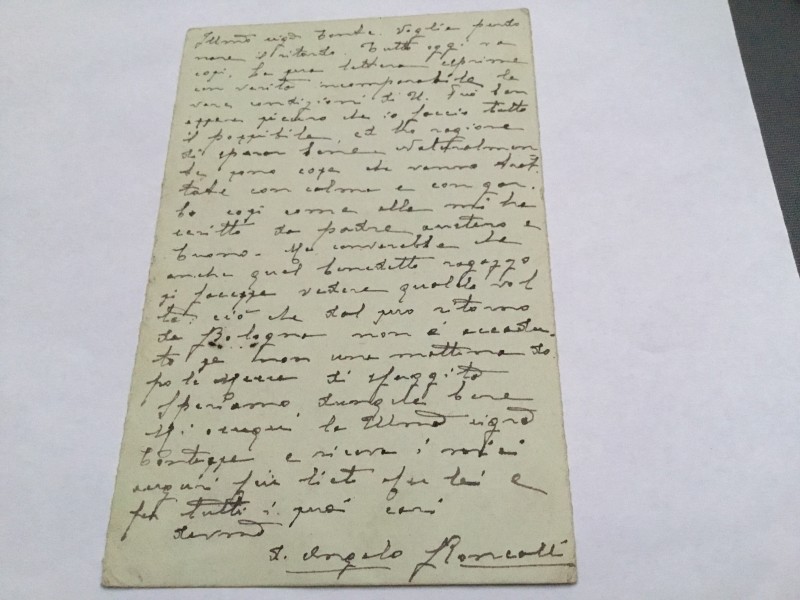 Illmo sigr Conte. Voglia perdo
nare il ritardo. Tutto oggi va
così. La sua lettera esprime
con verità incomparabile le
vere condizioni di
essere sicuro che io faccio tutto
il possibile, ed ho ragione
di sperar bene. Naturalmen
te sono cose che vanno trat
tate con calma e con gar
bo così come ella mi ha
scritto da padre austero e
buono. Mi converrebbe che
anche quel benedetto ragazzo
si facesse vedere qualche vol
ta: ciò che dal suo ritorno
da Bologna non è accadu
to se non una mattina do
po la Messa di sfuggita
Speriamo dunque bene
Mi ossequi la Illma sigra
Contessa e riceva i miei
auguri più lieti per lei e
per tutti i suoi cari
devmo
d. Angelo Roncalli